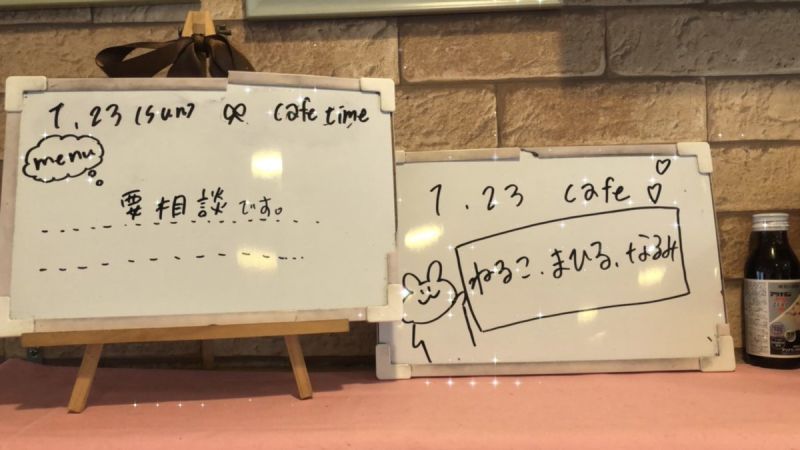 7.23 (sun) cafe time
menu
要相談です。
7.23 cafe ♡
ねるこ、まひる、なるみ